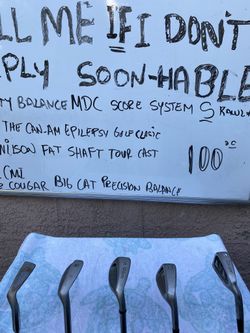 LL ME IF I DON'T
EPLY SOON-HABLE
TY BALANCE MDC SCORE SYSTEM S RAWL
THE CAN-AM EPILEPSY GOLF CLASIC
NILSON FAT SHAFT TOUR CAST 100
CMI
COUGAR BIG CAT PRECISION BALANCE